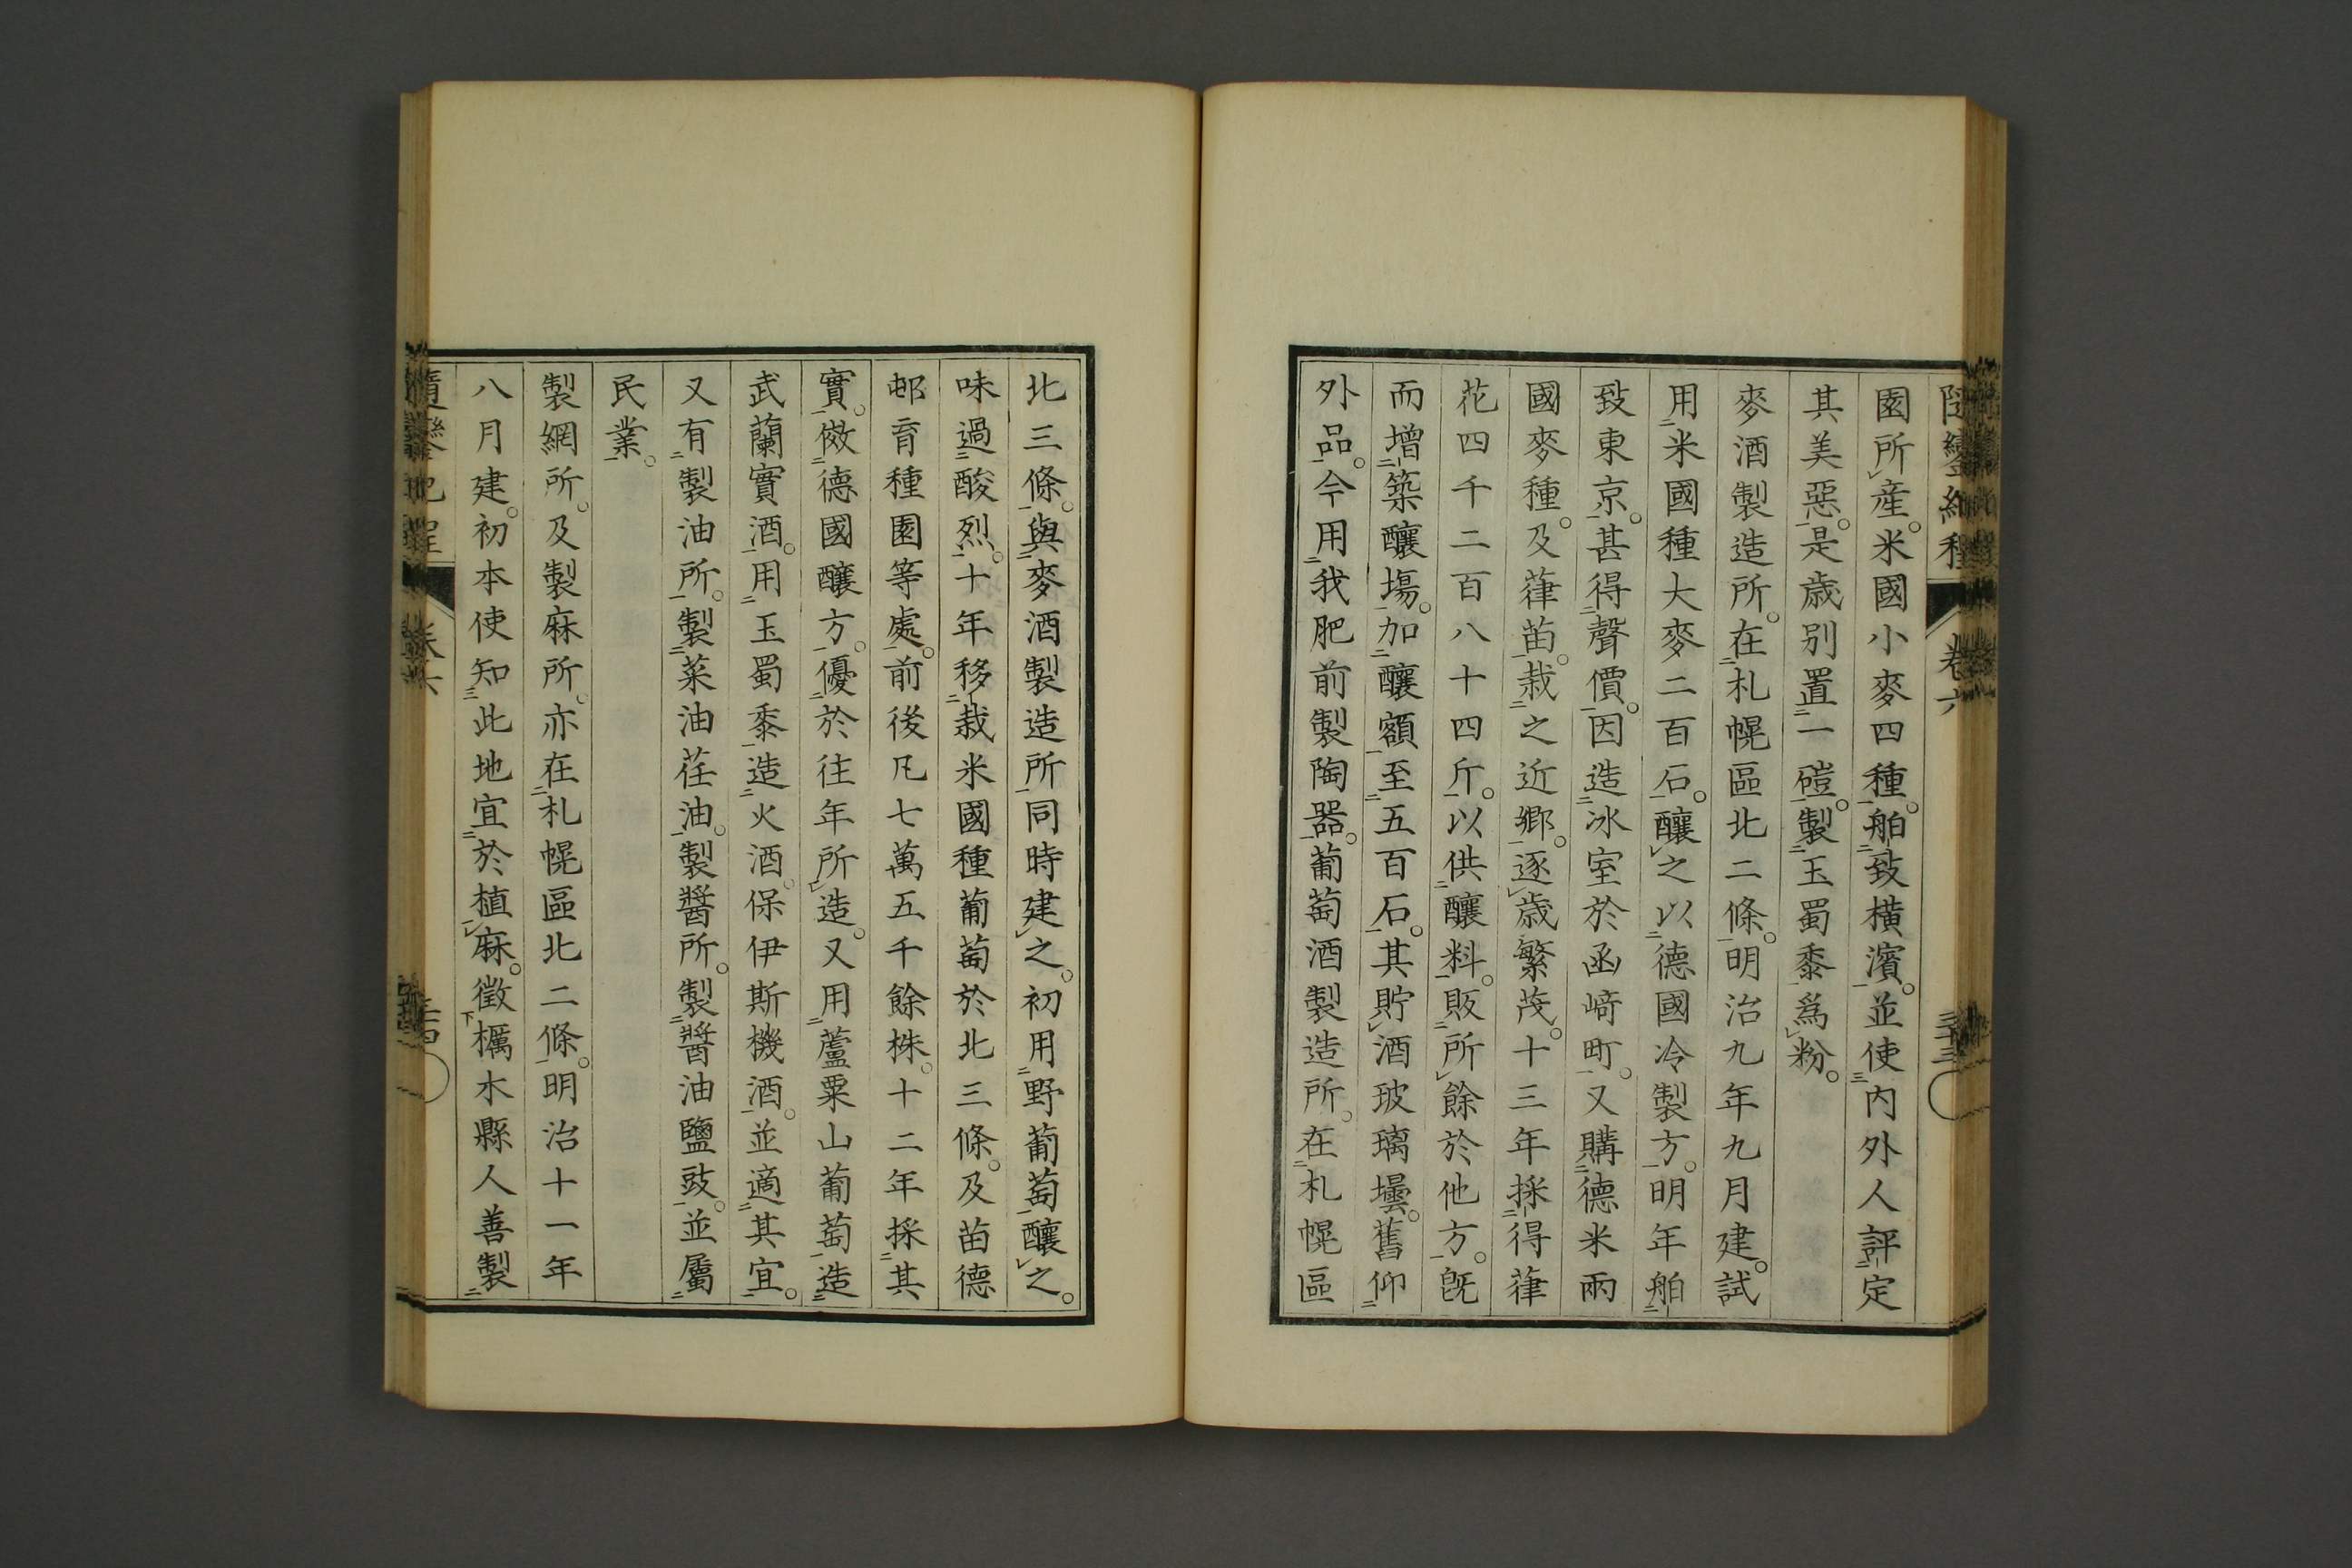 隨鑾紀程 卷六 三十三
園所產。米國小麥四種。舶致橫濱。並使內外人評定
其美惡。是歲別置一磑。製玉蜀黍爲粉。
麥酒製造所。在札幌區北二條。明治九年九月建。試
用米國種大麥二百石。釀之以德國冷製方。明年舶
致東京。甚得聲價。因造冰室於函﨑町。又購德米兩
國麥種。及葎苗。栽之近鄉。逐歲繁茂。十三年採得葎
花四千二百八十四斤。以供釀料。販所餘於他方。旣
而增築釀場。加釀額至五百石。其貯酒玻璃壜。舊仰
外品。今用我肥前製陶器。葡萄酒製造所。在札幌區
北三條。與麥酒製造所同時建之。初用野葡萄釀之。
味過酸烈。十年移栽米國種葡萄於北三條。及苗德
邨育種園等處。前後凡七萬五千餘株。十二年採其
實。倣德國釀方。優於往年所造。又用蘆粟山葡萄造
武蘭實酒。用玉蜀黍造火酒。保伊斯機酒。並適其宜。
又有製油所。製菜油荏油。製醬所。製醬油鹽豉。並屬
民業。
製網所。及製麻所。亦在札幌區北二條。明治十一年
八月建。初本使知此地宜於植麻。徵櫔木縣人善製
隨鑾紀程 卷六